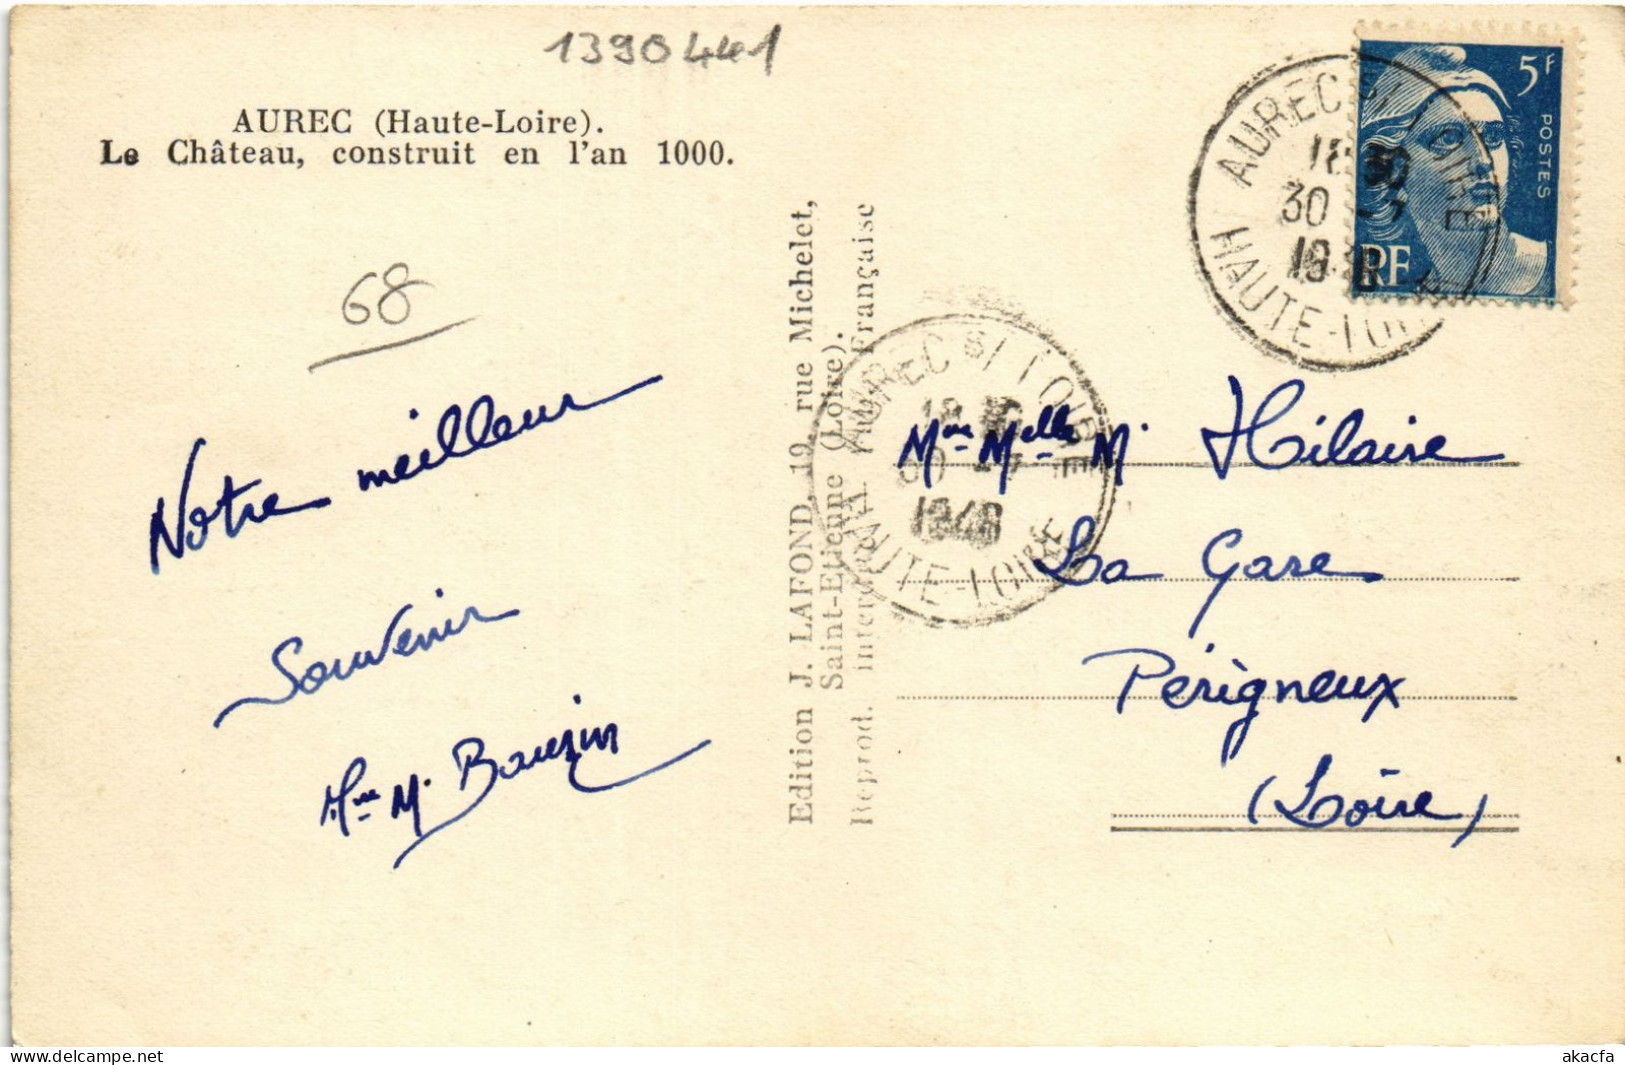 1390441
AUREC (Haute-Loire).
Le Château, construit en l'an 1000.
68
Notre meilleur
Souvenir
Mme M. Bouzin
Edition J. LAFOND, 19, rue Michelet,
Saint-Etienne (Loire).
Reprod. interdite Française
5F
POSTES
RF
AUREC S/ LOIRE
30 -7
HAUTE-LOIRE
AUREC S/ LOIRE
-7
1948
HAUTE-LOIRE
Mme Melle M. Hilaire
La Gare
Périgneux
(Loire)
delcampe.net
akacfa